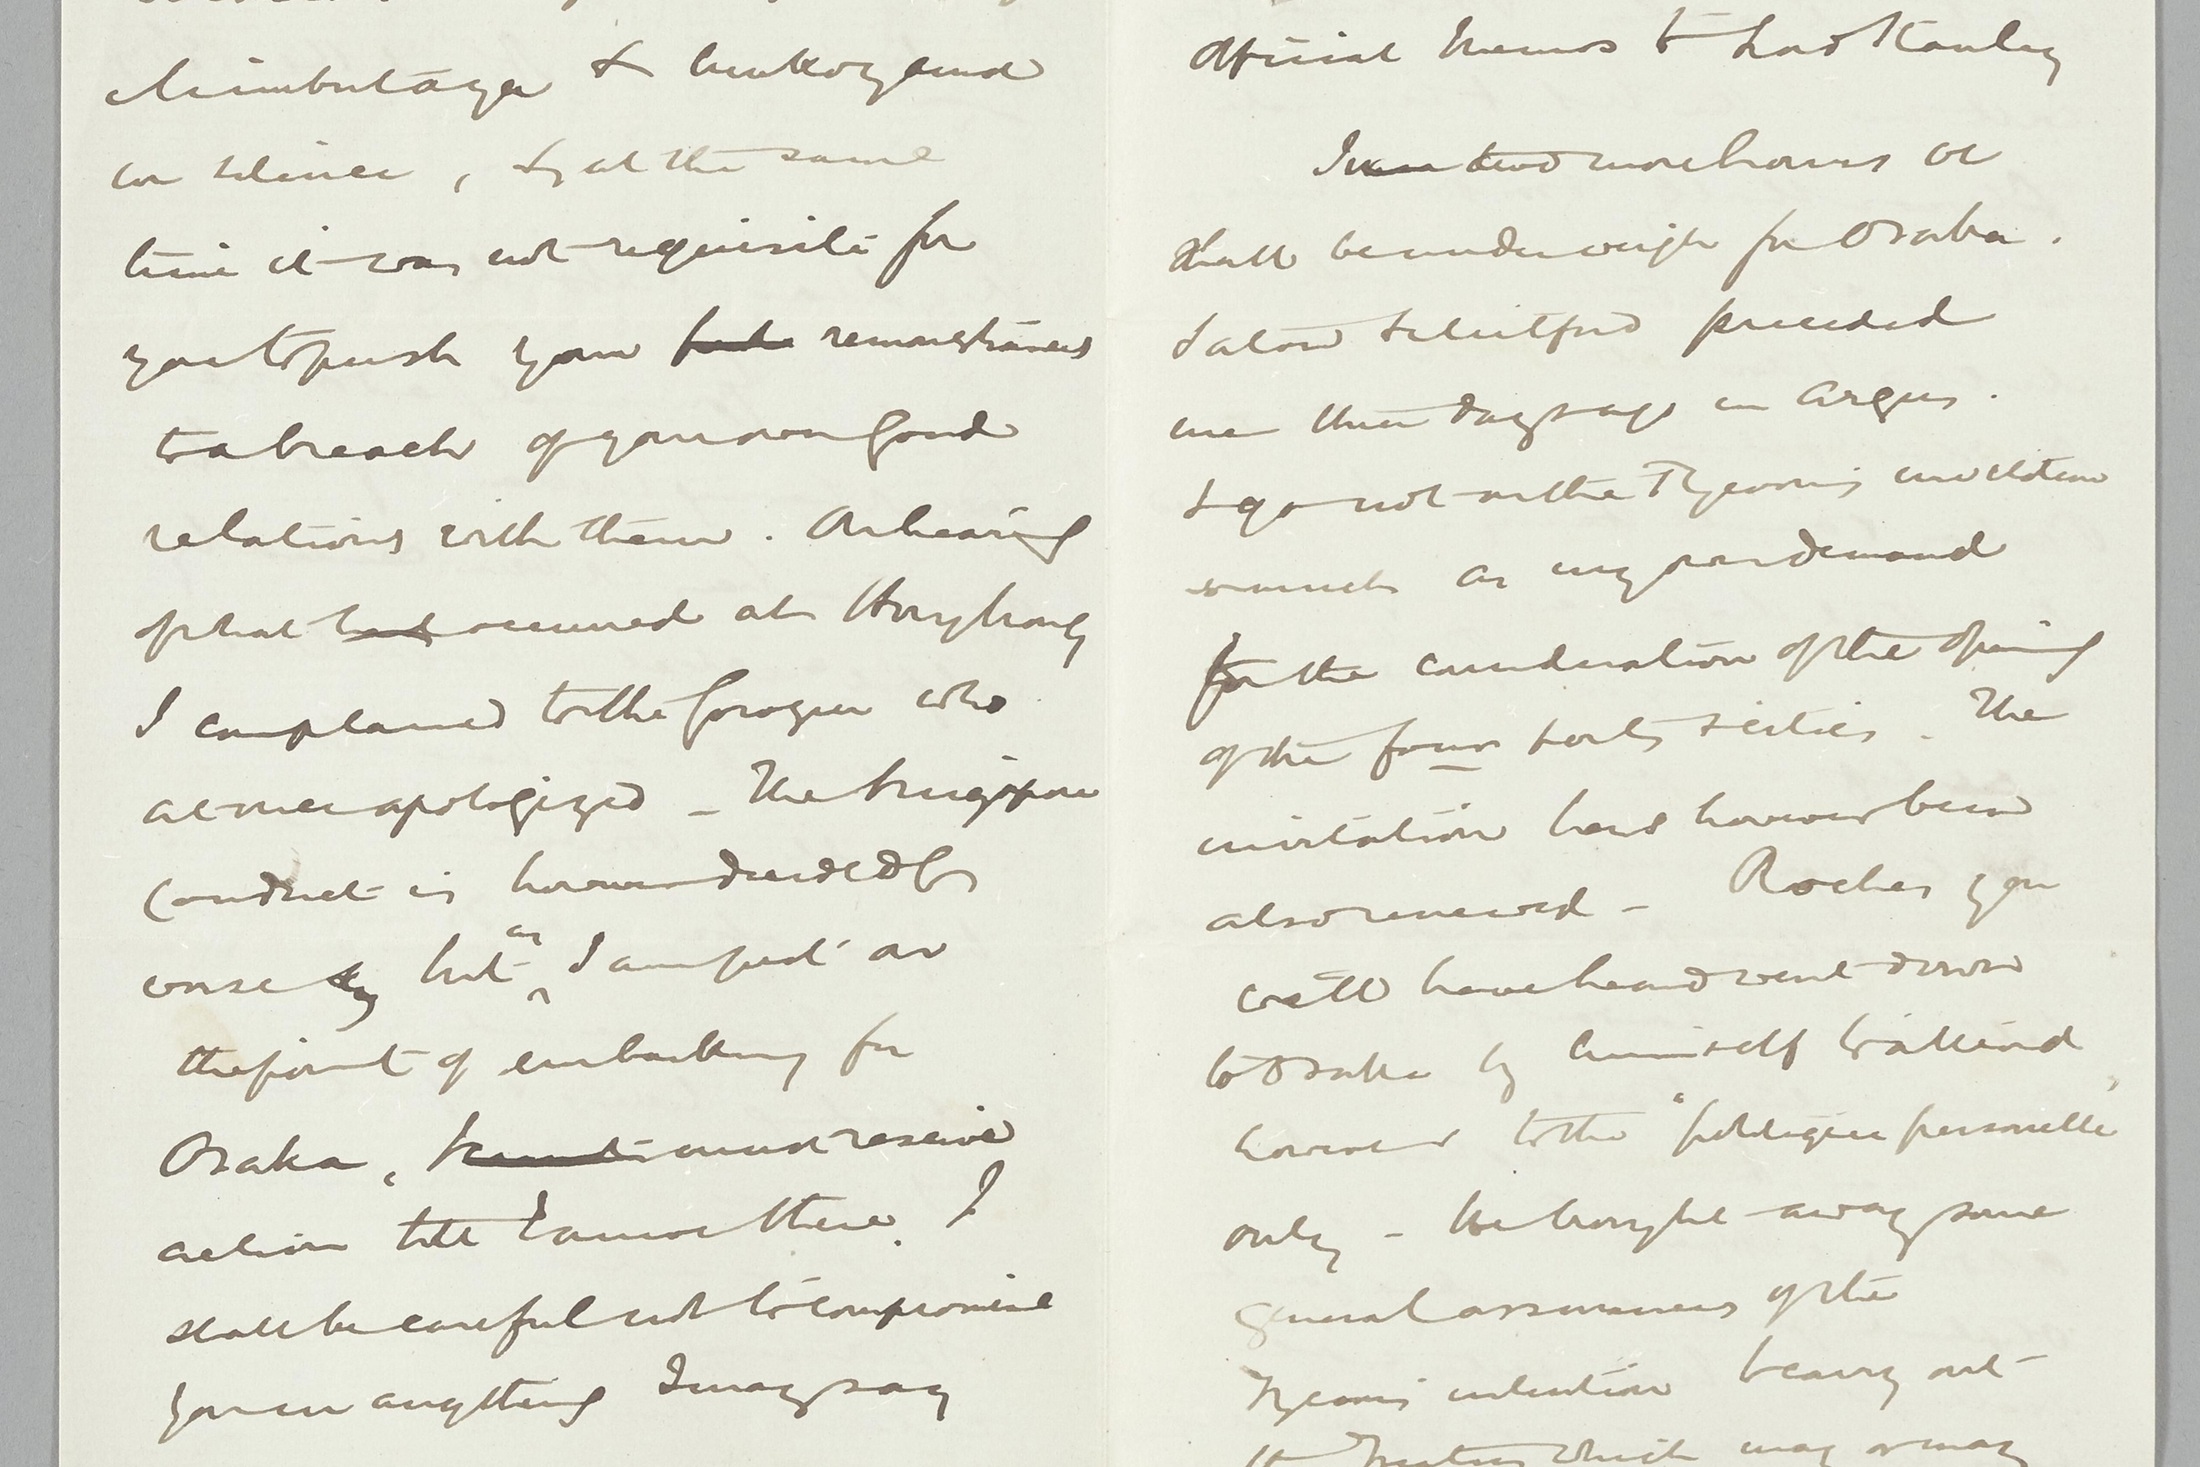 & take your
in silence, & at the same
time it was not requisite for
you to push your remonstrances
to a breach of your own good
relations with them. On hearing
of what had occurred at Hongkong
I complained to the Gorogiu who
at once apologized – The Singapore
conduct is however undecided
worse but as I am just on
the point of embarking for
Osaka, must reserve
action till I arrive there. I
shall be careful not to compromise
you in anything I may say
official to Lord Stanley
In two more hours we
shall be under weigh for Osaka.
Satow & Mitford preceded
me three days ago in Argus.
I go not on the Tycoon's invitation
so much as my own demand
for the consideration of the opening
of the four ports & cities. The
invitation has however been
also renewed – Roches you
will have heard went down
to Osaka by himself to attend
however to the "politique personelle
only – He brought away some
general assurances of the
Tycoon's intention to carry out
the Treaties which may or may